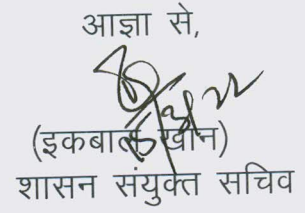 आज्ञा से,
(इकबाल खान)
शासन संयुक्त सचिव